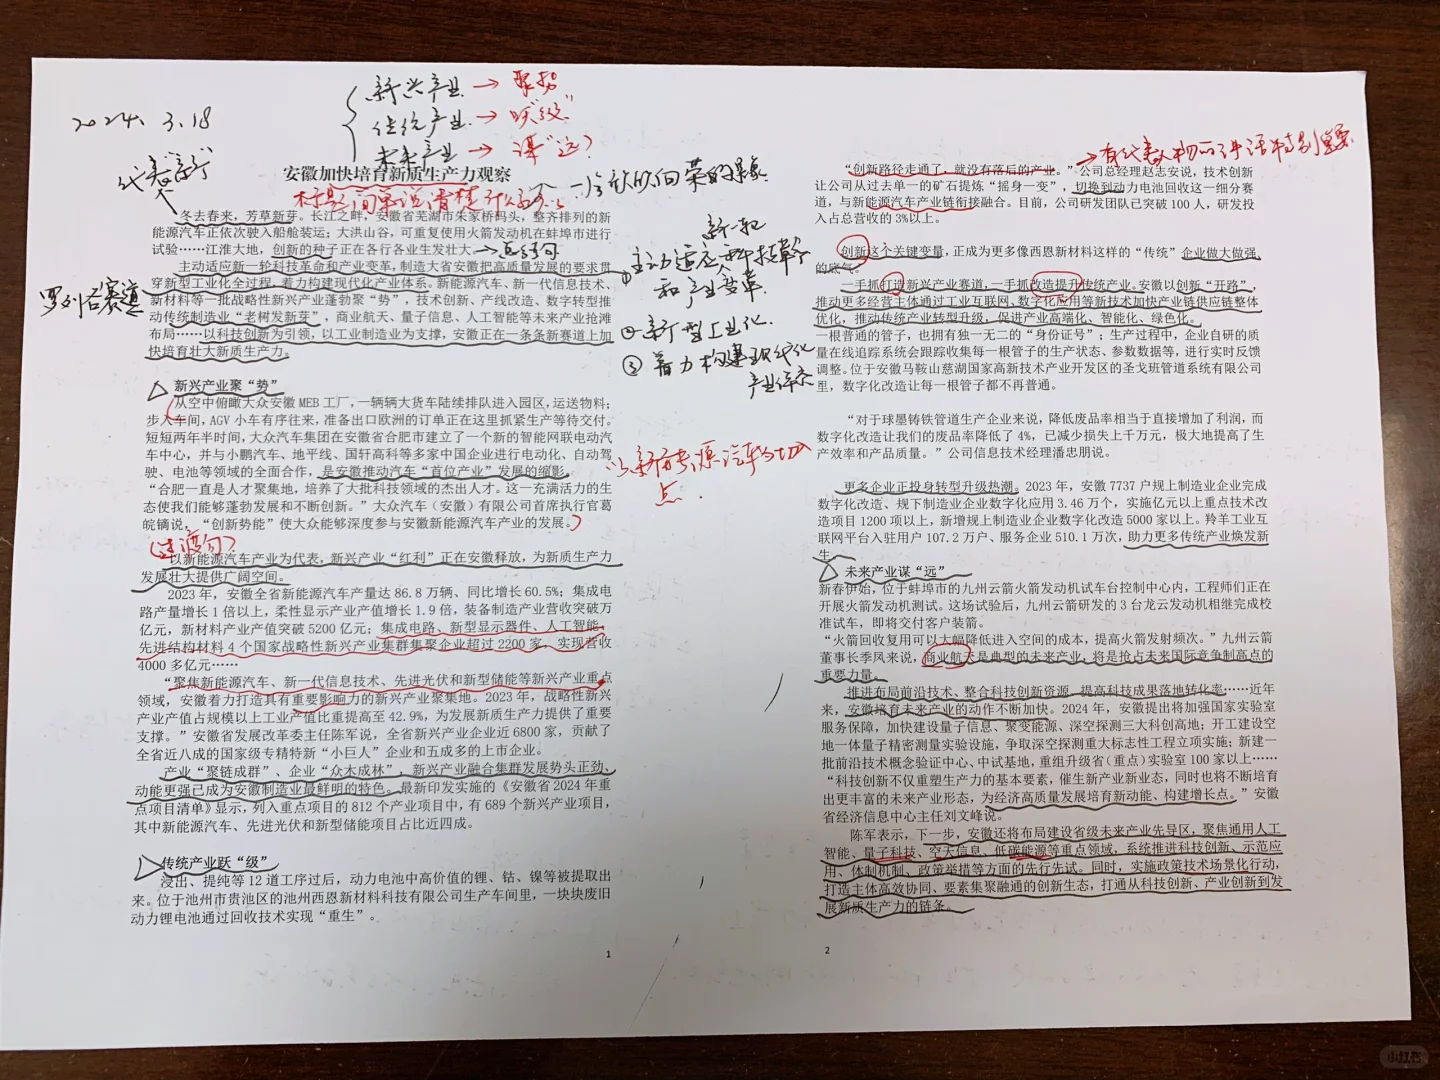 2024. 3.18
新兴产业 → 聚势
传统产业 → 跃“级”
未来产业 → 谋“远”
安徽加快培育新质生产力观察
罗列各赛道
冬去春来，芳草新芽。长江之畔，安徽省芜湖市朱家桥码头，整齐排列的新
能源汽车正依次驶入船舱装运；大洪山谷，可重复使用火箭发动机在蚌埠市进行
试验……江淮大地，创新的种子正在各行各业生发壮大。
主动适应新一轮科技革命和产业变革，制造大省安徽把高质量发展的要求贯
穿新型工业化全过程，着力构建现代化产业体系。新能源汽车、新一代信息技术、
新材料等一批战略性新兴产业蓬勃聚“势”，技术创新、产线改造、数字转型推
动传统制造业“老树发新芽”，商业航天、量子信息、人工智能等未来产业抢滩
布局……以科技创新为引领，以工业制造业为支撑，安徽正在一条条新赛道上加
快培育壮大新质生产力。
新一轮
①主动适应科技革命
和产业变革.
②新型工业化.
③着力构建现代化
产业体系
新兴产业聚“势”
从空中俯瞰大众安徽 MEB 工厂，一辆辆大货车陆续排队进入园区，运送物料；
步入车间，AGV 小车有序往来，准备出口欧洲的订单正在这里抓紧生产等待交付。
短短两年半时间，大众汽车集团在安徽省合肥市建立了一个新的智能网联电动汽
车中心，并与小鹏汽车、地平线、国轩高科等多家中国企业进行电动化、自动驾
驶、电池等领域的全面合作，是安徽推动汽车“首位产业”发展的缩影。
“合肥一直是人才聚集地，培养了大批科技领域的杰出人才。这一充满活力的生
态使我们能够蓬勃发展和不断创新。”大众汽车（安徽）有限公司首席执行官葛
皖镝说，“创新势能”使大众能够深度参与安徽新能源汽车产业的发展。
以新能源汽车为切入
点.
（过渡句）
以新能源汽车产业为代表，新兴产业“红利”正在安徽释放，为新质生产力
发展壮大提供广阔空间。
2023 年，安徽全省新能源汽车产量达 86.8 万辆、同比增长 60.5%；集成电
路产量增长 1 倍以上，柔性显示产业产值增长 1.9 倍，装备制造产业营收突破万
亿元，新材料产业产值突破 5200 亿元；集成电路、新型显示器件、人工智能、
先进结构材料 4 个国家战略性新兴产业集群集聚企业超过 2200 家，实现营收
4000 多亿元……
“聚焦新能源汽车、新一代信息技术、先进光伏和新型储能等新兴产业重点
领域，安徽着力打造具有重要影响力的新兴产业聚集地。2023 年，战略性新兴
产业产值占规模以上工业产值比重提高至 42.9%，为发展新质生产力提供了重要
支撑。”安徽省发展改革委主任陈军说，全省新兴产业企业近 6800 家，贡献了
全省近八成的国家级专精特新“小巨人”企业和五成多的上市企业。
产业“聚链成群”、企业“众木成林”，新兴产业融合集群发展势头正劲、
动能更强已成为安徽制造业最鲜明的特色。最新印发实施的《安徽省 2024 年重
点项目清单》显示，列入重点项目的 812 个产业项目中，有 689 个新兴产业项目，
其中新能源汽车、先进光伏和新型储能项目占比近四成。
传统产业跃“级”
浸出、提纯等 12 道工序过后，动力电池中高价值的锂、钴、镍等被提取出
来。位于池州市贵池区的池州西恩新材料科技有限公司生产车间里，一块块废旧
动力锂电池通过回收技术实现“重生”。
1
“创新路径走通了，就没有落后的产业。”公司总经理赵志安说，技术创新
让公司从过去单一的矿石提炼“摇身一变”，切换到动力电池回收这一细分赛
道，与新能源汽车产业链衔接融合。目前，公司研发团队已突破 100 人，研发投
入占总营收的 3%以上。
创新这个关键变量，正成为更多像西恩新材料这样的“传统”企业做大做强
的底气。
一手抓打造新兴产业赛道，一手抓改造提升传统产业。安徽以创新“开路”，
推动更多经营主体通过工业互联网、数字化应用等新技术加快产业链供应链整体
优化，推动传统产业转型升级，促进产业高端化、智能化、绿色化。
一根普通的管子，也拥有独一无二的“身份证号”；生产过程中，企业自研的质
量在线追踪系统会跟踪收集每一根管子的生产状态、参数数据等，进行实时反馈
调整。位于安徽马鞍山慈湖国家高新技术产业开发区的圣戈班管道系统有限公司
里，数字化改造让每一根管子都不再普通。
“对于球墨铸铁管道生产企业来说，降低废品率相当于直接增加了利润，而
数字化改造让我们的废品率降低了 4%，已减少损失上千万元，极大地提高了生
产效率和产品质量。”公司信息技术经理潘忠朋说。
更多企业正投身转型升级热潮。2023 年，安徽 7737 户规上制造业企业完成
数字化改造、规下制造业企业数字化应用 3.46 万个，实施亿元以上重点技术改
造项目 1200 项以上，新增规上制造业企业数字化改造 5000 家以上。羚羊工业互
联网平台入驻用户 107.2 万户、服务企业 510.1 万次，助力更多传统产业焕发新
生。
未来产业谋“远”
新春伊始，位于蚌埠市的九州云箭火箭发动机试车台控制中心内，工程师们正在
开展火箭发动机测试。这场试验后，九州云箭研发的 3 台龙云发动机相继完成校
准试车，即将交付客户装箭。
“火箭回收复用可以大幅降低进入空间的成本，提高火箭发射频次。”九州云箭
董事长季凤来说，商业航天是典型的未来产业，将是抢占未来国际竞争制高点的
重要力量。
推进布局前沿技术、整合科技创新资源、提高科技成果落地转化率……近年
来，安徽培育未来产业的动作不断加快。2024 年，安徽提出将加强国家实验室
服务保障，加快建设量子信息、聚变能源、深空探测三大科创高地；开工建设空
地一体量子精密测量实验设施，争取深空探测重大标志性工程立项实施；新建一
批前沿技术概念验证中心、中试基地，重组升级省（重点）实验室 100 家以上……
“科技创新不仅重塑生产力的基本要素，催生新产业新业态，同时也将不断培育
出更丰富的未来产业形态，为经济高质量发展培育新动能、构建增长点。”安徽
省经济信息中心主任刘文峰说。
陈军表示，下一步，安徽还将布局建设省级未来产业先导区，聚焦通用人工
智能、量子科技、空天信息、低碳能源等重点领域，系统推进科技创新、示范应
用、体制机制、政策举措等方面的先行先试。同时，实施政策技术场景化行动，
打造主体高效协同、要素集聚融通的创新生态，打通从科技创新、产业创新到发
展新质生产力的链条。
2
小红书